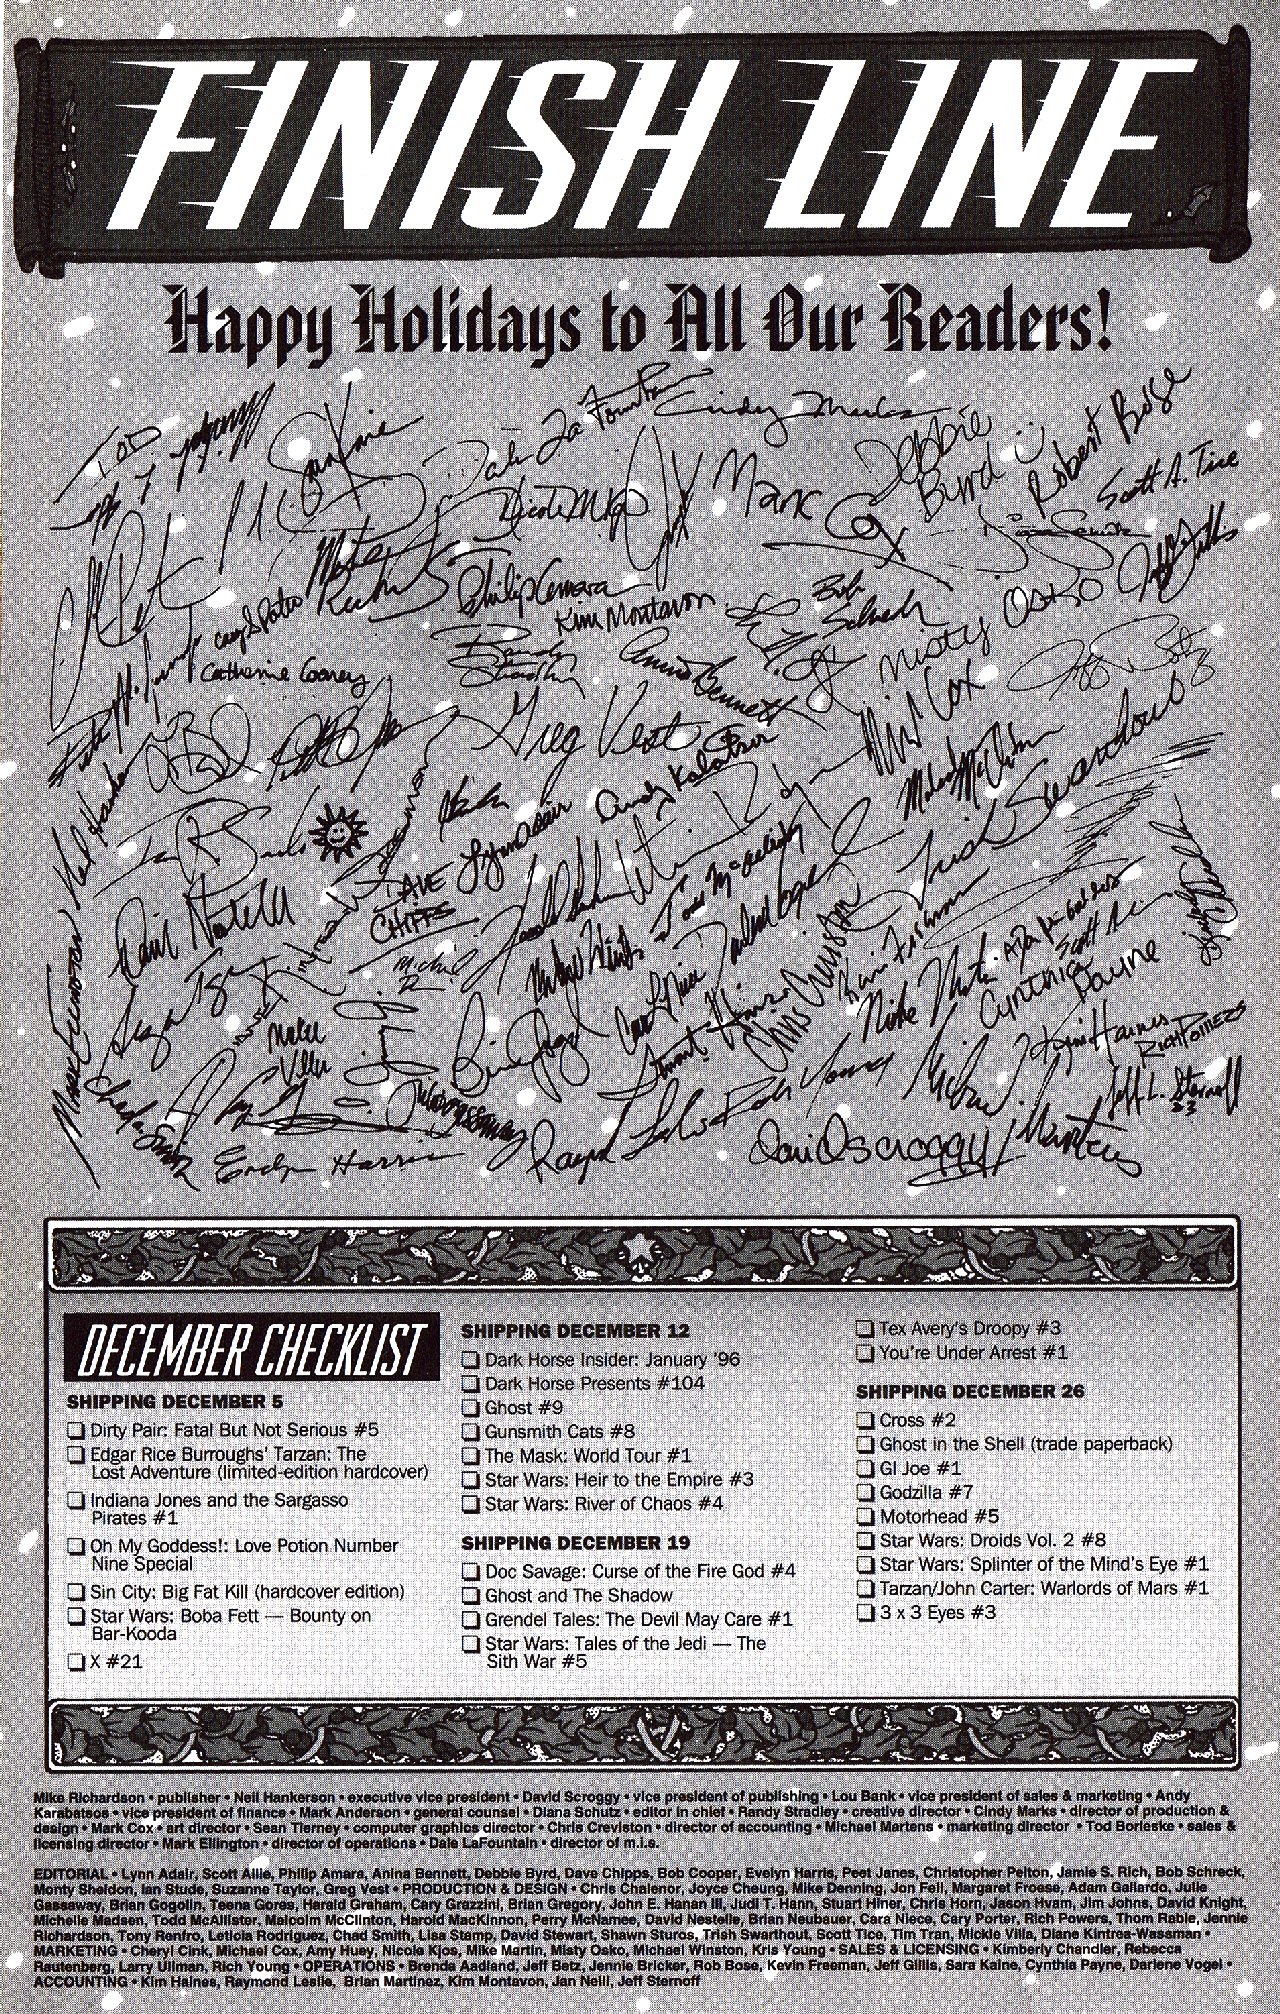 FINISH LINE
Happy Holidays to All Our Readers!
Cindy Marks
Debbie Byrd
Robert Bose
Mark Cox
Scott A. Tice
Philip Amara
Kim Montavon
Bob Schreck
Misty Osko
Catherine Cooney
Anina Bennett
Greg Vest
Trish Swarthout
Lynn Adair
DAVE CHIPPS
Todd McAllister
Darlene Vogel
Mike Martin
Cynthia Payne
Kim Haines
RICH POWERS
Jeff L. Sternoff
Mark Ellington
Chad Smith
Evelyn Harris
David Scroggy
DECEMBER CHECKLIST
SHIPPING DECEMBER 5
Dirty Pair: Fatal But Not Serious #5
Edgar Rice Burroughs' Tarzan: The
Lost Adventure (limited-edition hardcover)
Indiana Jones and the Sargasso
Pirates #1
Oh My Goddess!: Love Potion Number
Nine Special
Sin City: Big Fat Kill (hardcover edition)
Star Wars: Boba Fett — Bounty on
Bar-Kooda
X #21
SHIPPING DECEMBER 12
Dark Horse Insider: January '96
Dark Horse Presents #104
Ghost #9
Gunsmith Cats #8
The Mask: World Tour #1
Star Wars: Heir to the Empire #3
Star Wars: River of Chaos #4
SHIPPING DECEMBER 19
Doc Savage: Curse of the Fire God #4
Ghost and The Shadow
Grendel Tales: The Devil May Care #1
Star Wars: Tales of the Jedi — The
Sith War #5
Tex Avery's Droopy #3
You're Under Arrest #1
SHIPPING DECEMBER 26
Cross #2
Ghost in the Shell (trade paperback)
GI Joe #1
Godzilla #7
Motorhead #5
Star Wars: Droids Vol. 2 #8
Star Wars: Splinter of the Mind's Eye #1
Tarzan/John Carter: Warlords of Mars #1
3 x 3 Eyes #3
Mike Richardson • publisher • Neil Hankerson • executive vice president • David Scroggy • vice president of publishing • Lou Bank • vice president of sales & marketing • Andy
Karabatsos • vice president of finance • Mark Anderson • general counsel • Diana Schutz • editor in chief • Randy Stradley • creative director • Cindy Marks • director of production &
design • Mark Cox • art director • Sean Tierney • computer graphics director • Chris Creviston • director of accounting • Michael Martens • marketing director • Tod Borleske • sales &
licensing director • Mark Ellington • director of operations • Dale LaFountain • director of m.i.s.
EDITORIAL • Lynn Adair, Scott Allie, Philip Amara, Anina Bennett, Debbie Byrd, Dave Chipps, Bob Cooper, Evelyn Harris, Peet Janes, Christopher Pelton, Jamie S. Rich, Bob Schreck,
Monty Sheldon, Ian Stude, Suzanne Taylor, Greg Vest • PRODUCTION & DESIGN • Chris Chalenor, Joyce Cheung, Mike Denning, Jon Fell, Margaret Froese, Adam Gallardo, Julie
Gassaway, Brian Gogolin, Teena Gores, Harald Graham, Cary Grazzini, Brian Gregory, John E. Hanan III, Judi T. Hann, Stuart Hiner, Chris Horn, Jason Hvam, Jim Johns, David Knight,
Michelle Madsen, Todd McAllister, Malcolm McClinton, Harold MacKinnon, Perry McNamee, David Nestelle, Brian Neubauer, Cara Niece, Cary Porter, Rich Powers, Thom Rabie, Jennie
Richardson, Tony Renfro, Leticia Rodriguez, Chad Smith, Lisa Stamp, David Stewart, Shawn Sturos, Trish Swarthout, Scott Tice, Tim Tran, Mickie Villa, Diane Kintrea-Wassman •
MARKETING • Cheryl Cink, Michael Cox, Amy Huey, Nicole Kjos, Mike Martin, Misty Osko, Michael Winston, Kris Young • SALES & LICENSING • Kimberly Chandler, Rebecca
Rautenberg, Larry Ullman, Rich Young • OPERATIONS • Brenda Aadland, Jeff Betz, Jennie Bricker, Rob Bose, Kevin Freeman, Jeff Gillis, Sara Kaine, Cynthia Payne, Darlene Vogel •
ACCOUNTING • Kim Haines, Raymond Leslie, Brian Martinez, Kim Montavon, Jan Neill, Jeff Sternoff